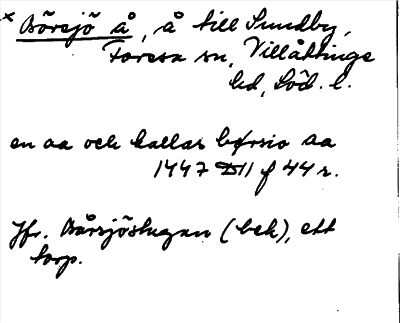 × Börsjö å, å till Sundby,
Toresa sn, Villåttinge
hd, Söd. l.
en aa och kallas børsio aa
1447 DII f 44 r.
Jfr. Bårsjöstugan (bek), ett
torp.